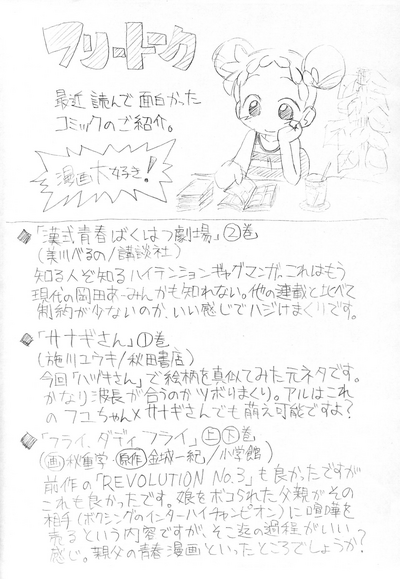 フリートーク
最近読んで面白かった
コミックのご紹介。
漫画大好き!
◆「漢弐青春ばくはつ劇場」②巻
(美川べるの/講談社)
知る人ぞ知るハイテンションギャグマンガ。これはもう
現代の岡田あーみんかも知れない。他の連載と比べて
制約が少ないのか、いい感じでハジけまくりです。
◆「サナギさん」①巻
(施川ユウキ/秋田書店)
今回「ハヅキさん」で絵柄を真似てみた元ネタです。
かなり波長が合うのかツボりまくり。アルはこれ
のフユちゃん×サナギさんでも萌え可能ですよ?
◆「フライ,ダディ,フライ」上下巻
(画)秋重学・(原作)金城一紀/小学館)
前作の「REVOLUTION No.3」も良かったですが
これも良かったです。娘をボコられた父親がその
相手(ボクシングのインターハイチャンピオン)に喧嘩を
売るという内容ですが、そこ迄の過程がいい
感じ。親父の青春漫画といったところでしょうか?